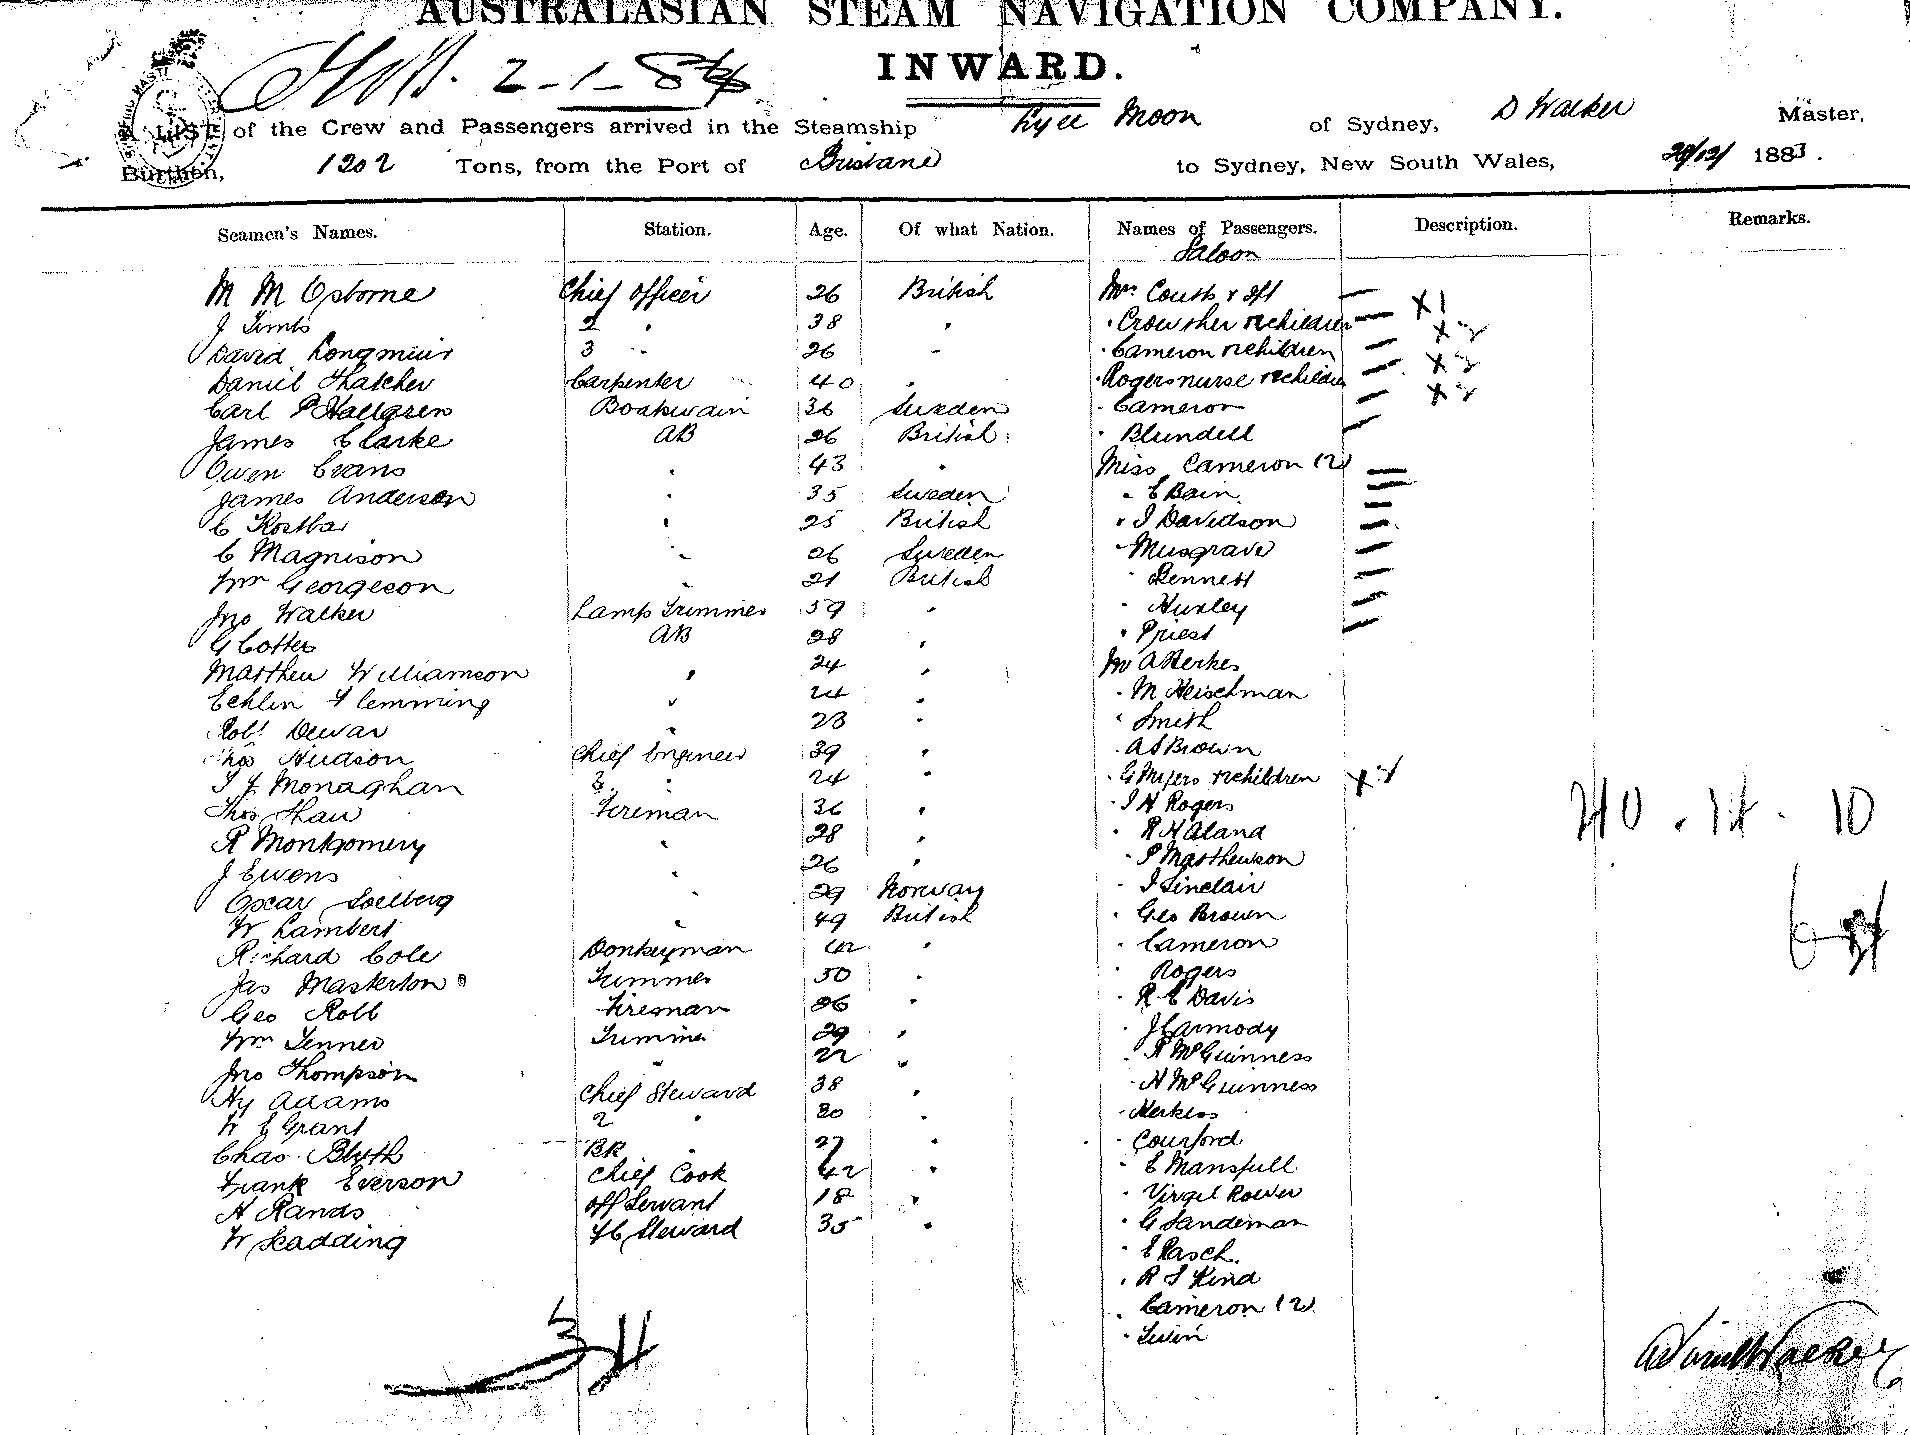 AUSTRALASIAN STEAM NAVIGATION COMPANY.
INWARD.
2-1-84
A LIST of the Crew and Passengers arrived in the Steamship Lyee Moon of Sydney, D Walker Master,
Burthen, 1202 Tons, from the Port of Brisbane to Sydney, New South Wales, 29/12/ 1883.
Seamen's Names. Station. Age. Of what Nation. Names of Passengers. Description. Remarks.
Saloon
M M Osborne Chief Officer 26 British Mrs Coutts & Sft
J Timbs 2 " 38 " " Crowther & children X1
David Longmuir 3 " 26 " " Cameron & children X2
Daniel Thatcher Carpenter 40 " " Rogers nurse & children X2
Carl P Hallgren Boatswain 36 Sweden " Cameron X2
James Clarke AB 26 British " Blundell
Owen Evans " 43 " Miss Cameron (2)
James Anderson " 35 Sweden " E Bain
C Kostba " 25 British " I Davidson
C Magnison " 26 Sweden " Musgrave
Wm Georgeson " 21 British " Bennett
Jno Walker Lamp Trimmer 59 " " Huxley
G Cotter AB 28 " " Priest
Matthew Williamson " 24 " Mr A Herkes
Echlin Flemming " 24 " " M Heischman
Robt Dewar " 23 " " Smith
Thos Hudson Chief Engineer 39 " " A S Brown
T J Monaghan 3 " 24 " " G Myers & children X2
Thos Shaw Fireman 36 " " J H Rogers
R Montgomery " 28 " " R H Aland
J Ewens " 26 " " P Matthewson
Oscar Soelberg " 29 Norway " J Sinclair
W Lambert " 49 British " Geo Brown
Richard Cole Donkeyman 42 " " Cameron
Jas Masterton Trimmer 50 " " Rogers
Geo Robb Fireman 26 " " R E Davis
Wm Jenner Trimmer 29 " " J Carmody
Jno Thompson " 22 " " R McGuinness
Hy Adams Chief Steward 38 " " H McGuinness
W E Grant 2 " 30 " " Herkes
Chas Blyth BR " 27 " " Courford
Frank Everson Chief Cook 42 " " E Mansfull
H Rands Off Servant 18 " " Virgil Power
W Scadding FC Steward 35 " " G Sandeman
" E Rasch.
" R S Kind
" Cameron (2)
" Swin
40 . 14 . 10
34
David Walker